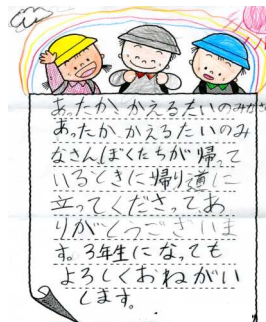 あったか、かえるたいのみなさ
あったか、かえるたいのみ
なさんぼくたちが帰って
いるときに帰り道に
立ってくださってあ
りがとうございま
す。3年生になっても
よろしくおねがい
します。